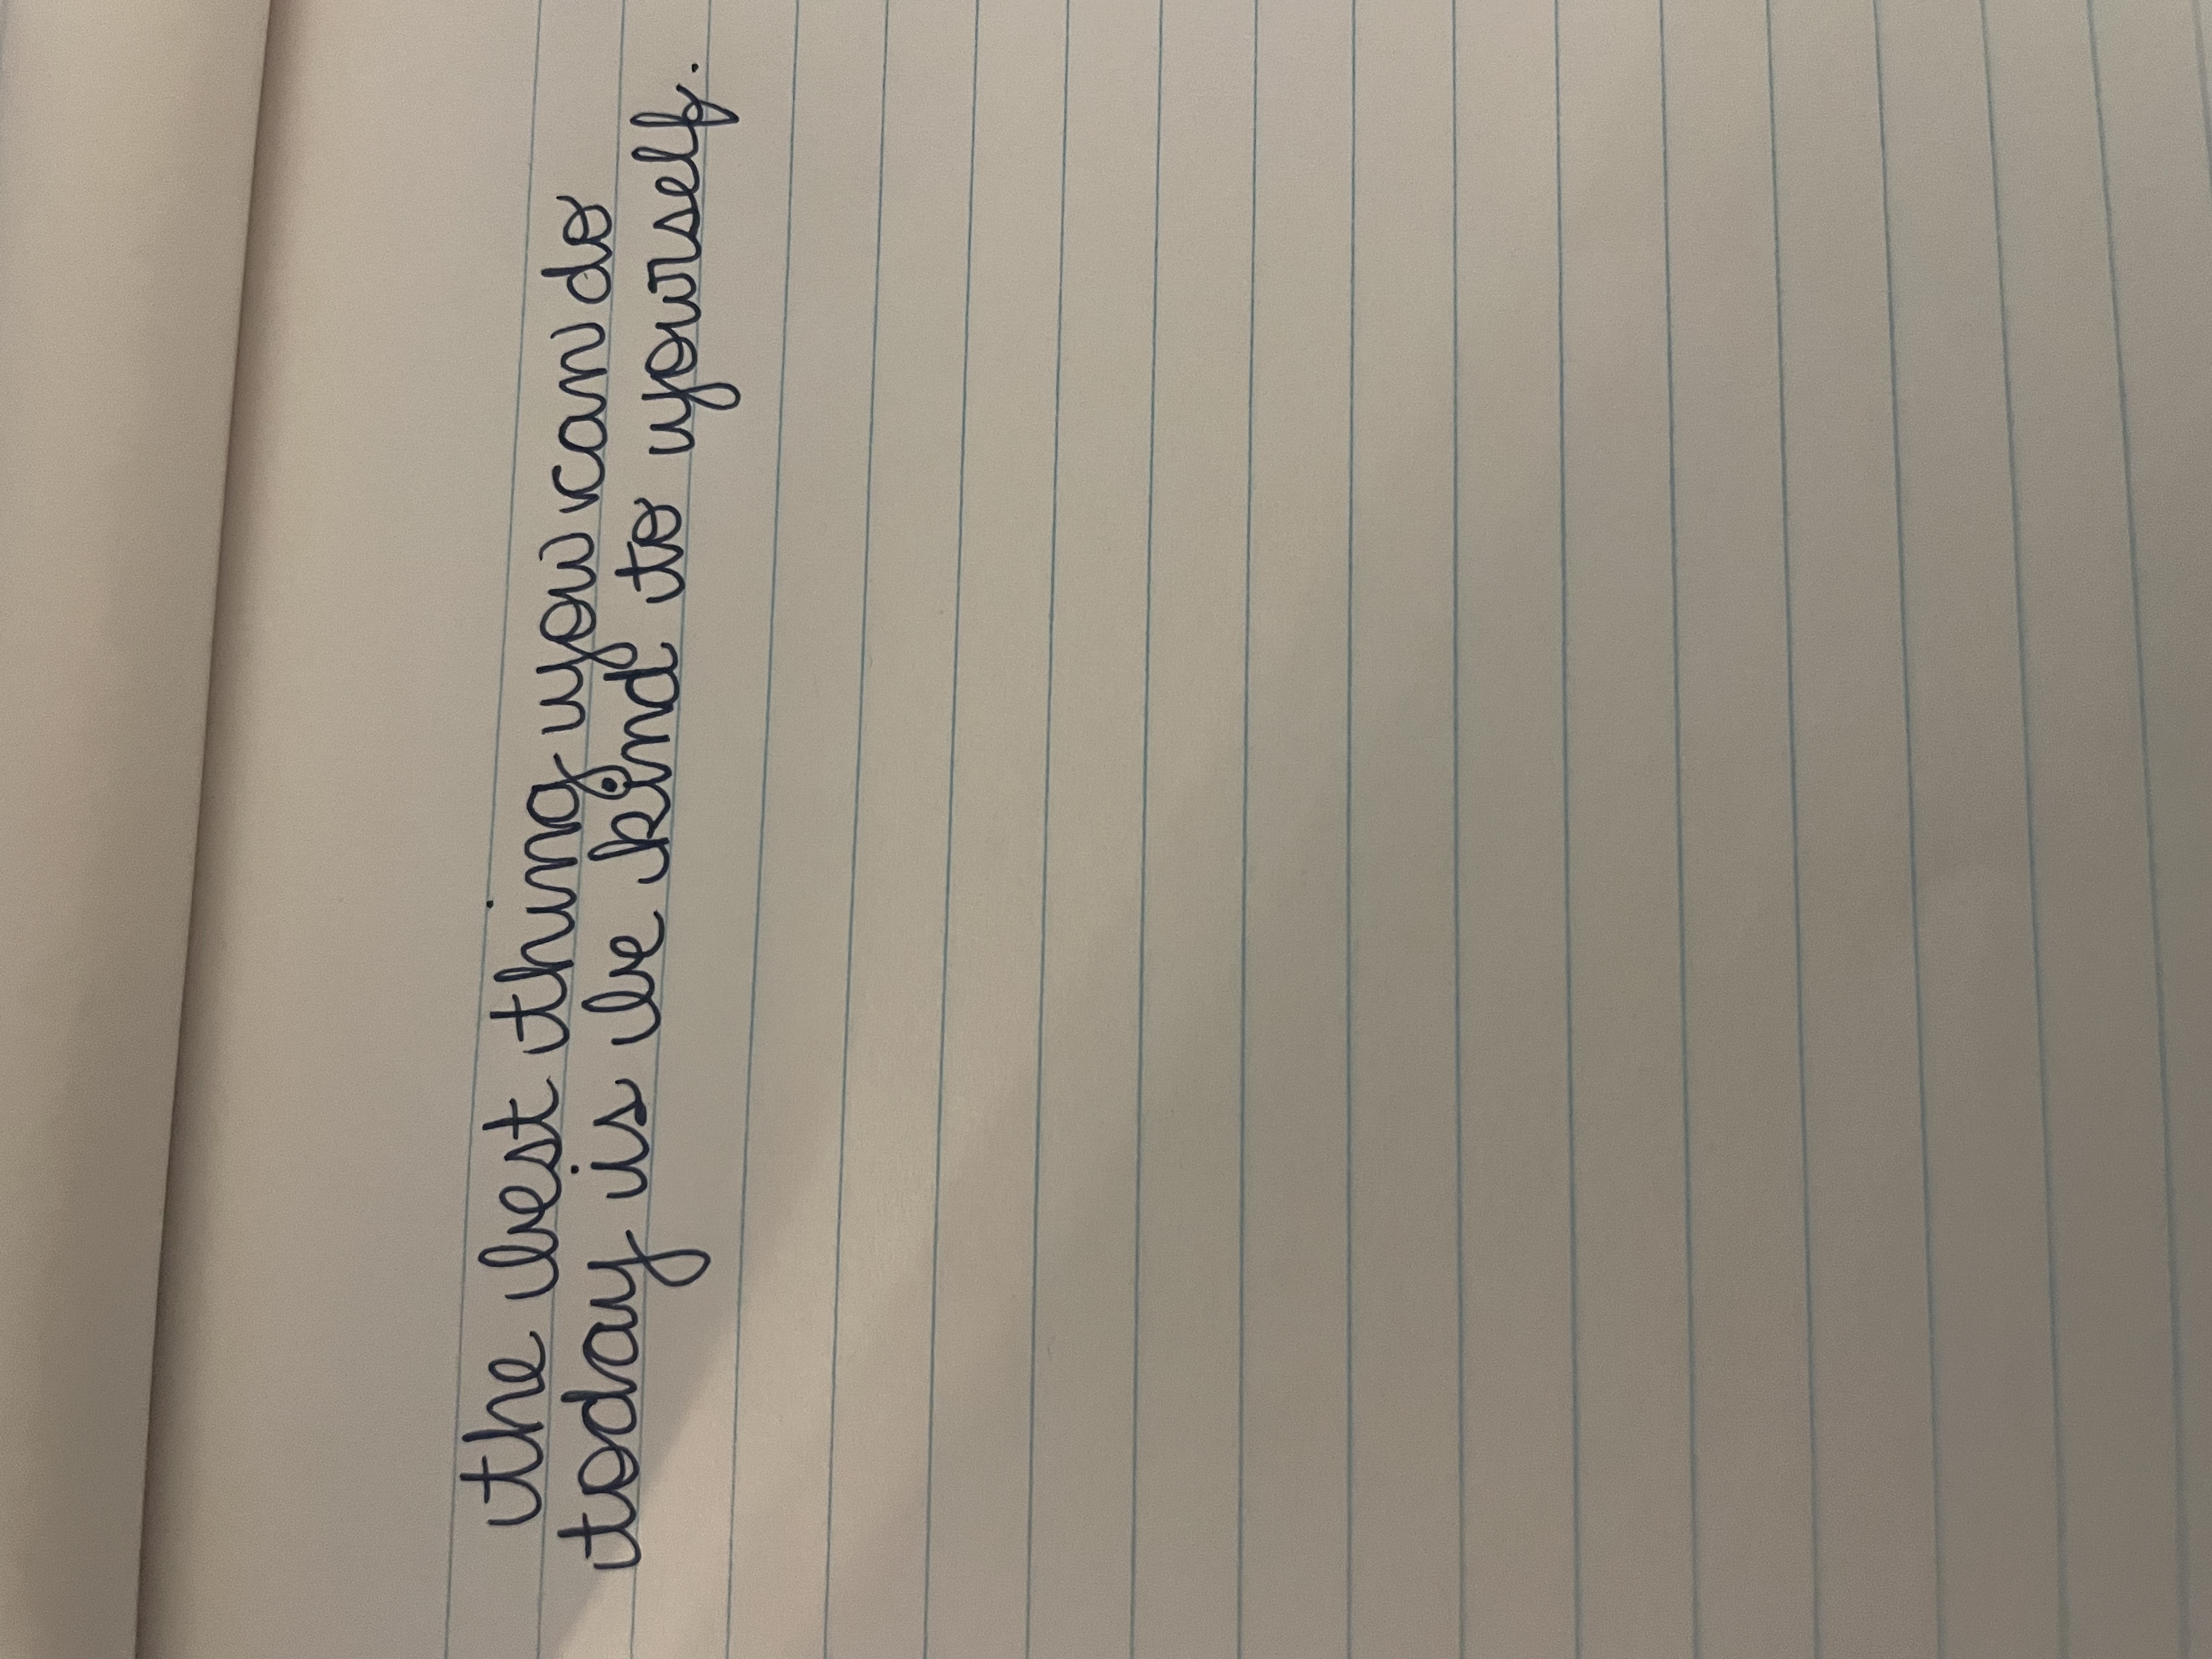 the best thing you can do
today is be kind to yourself.